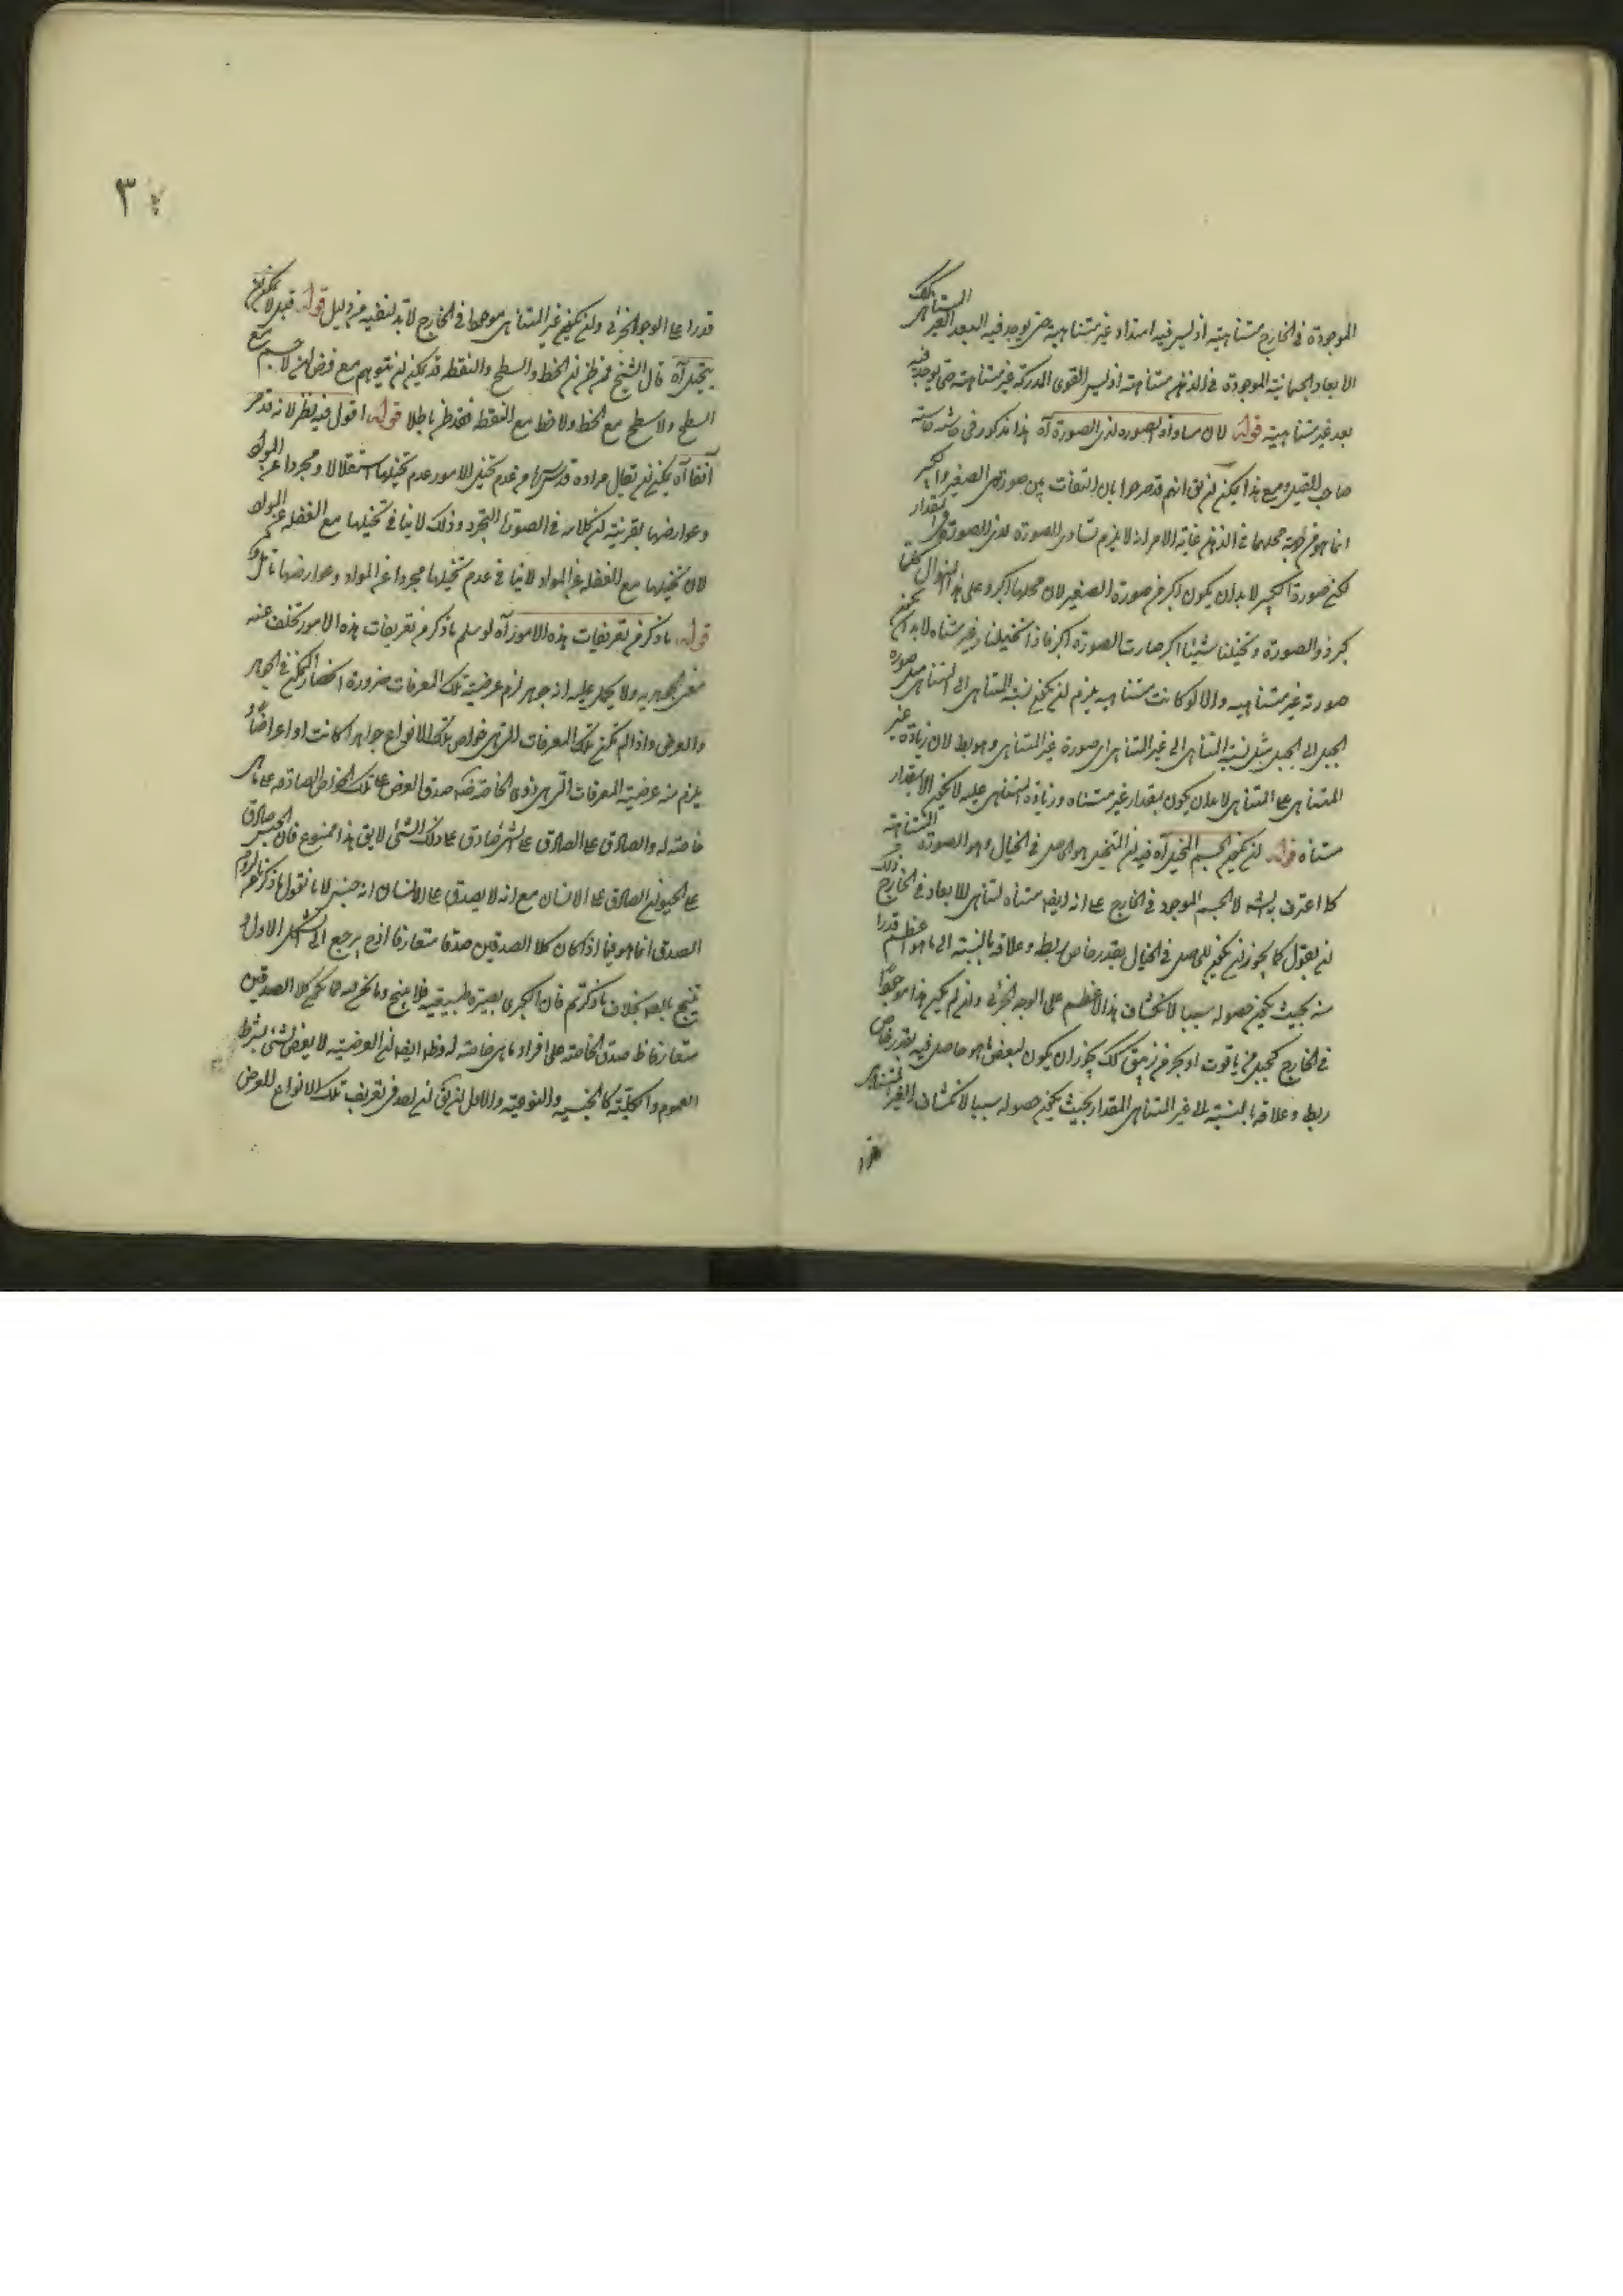 الموجودة في الخارج متناهية اذ ليس فيه امتداد غير متناهية حتى يوجد فيه البعد الغير المتناهى كك
الابعاد الجسمانية الموجودة في الذهن متناهية اذ ليس القوى المدركة غير متناهية حتى يوجد فيه
بعد غير متناهية قوله لان مساواة الصورة لذى الصورة آه هذا مذكور في حاشية
صاحب القيل ومع هذا يمكن ان يق انهم قد صرحوا بان التفات بين صورتى الصغير والكبير
انما هو من جهة محلهما في الذهن غاية الامر انه لا يلزم تساوى الصورة لذى الصورة في المقدار
لكن صورة الكبير لا بد ان يكون اكبر من صورة الصغير لان محلها اكبر وعلى هذا المنوال كلما
كبر ذو الصورة وتخيلنا شيئا اكبر صارت الصورة اكبر فاذا تخيلنا غير متناه لا بد ان يكون
صورته غير متناهية والا لو كانت متناهية يلزم ان يكون نسبة المتناهى الى المتناهى مثل صورة
الجبل الى الجبل مثل نسبة المتناهى الى غير المتناهى اى صورة غير المتناهى وهو بط لان زيادة غير
المتناهى على المتناهى لا بد ان يكون بمقدار غير متناه وزيادة المتناهى عليه لا يكون الا بمقدار
متناه قوله ان يكون الجسم المتخيل آه فيه ان المتخيل هو الحاصل في الخيال وهو الصورة المتناهية
كما اعترف به لا الجسم الموجود في الخارج على انه ايضا متناه لتناهى الابعاد في الخارج وذلك
ان يقول كما يجوز ان يكون للحاصل في الخيال بقدر خاص ربط وعلاقة بالنسبة الى ما هو اعظم قدرا
منه بحيث يكون حصوله سببا لانكشاف هذا الاعظم على الوجه الجزئى وان لم يكن هذا موجودا
في الخارج كجبل من ياقوت او بحر من زيبق كك يجوز ان يكون لبعض ما هو حاصل فيه بقدر خاص
ربط وعلاقة بالنسبة الى غير المتناهى المقدار بحيث يكون حصوله سببا لانكشاف الغير المتناهى
قدرا
٣
قدرا على الوجه الجزئى وان يكون غير المتناهى موجودا في الخارج لا بد لنفيه من دليل قوله قيل لا يمكن ان
يتخيل آه قال الشيخ من ظن ان الخط والسطح والنقطة قد يمكن ان يتوهم مع فرض ان لا جسم مع
السطح ولا سطح مع الخط ولا خط مع النقطة فقد ظن باطلا قوله اقول فيه نظر لانه قد مر
آنفا آه يمكن ان يقال مراده قدس سره من عدم تخيل الامور عدم تخيلها استقلالا ومجردا عن المواد
وعوارضها بقرينة ان كلامه في الصورة المجرد وذلك لا ينافي تخيلها مع الغفلة عن المواد
لان تخيلها مع الغفلة عن المواد لا ينافي عدم تخيلها مجردا عن المواد وعوارضها تأمل
قوله ما ذكر من تعريفات هذه الامور آه لو سلم ما ذكر من تعريفات هذه الامور تخلف عنه
معنى الجوهرية ولا يحمل عليه انه جوهر لزم عرضية تلك المعرفات ضرورة انحصار الممكن في الجوهر
والعرض واذا لم يكن تلك المعرفات التى هى خواص تلك الانواع جواهرا كانت اعراضا و
يلزم منه عرضية المعرفات التى هى ذوى الخاصة صدق العرض على تلك الخواص الصادقة على ما هى
خاصة له والصادق على الصادق على الشئ صادق على ذلك الشئ لا يق هذا ممنوع فان الجنس صادق
على الحيوان الصادق على الانسان مع انه لا يصدق على الانسان انه جنس لانا نقول ما ذكرنا من لزوم
الصدق انما هو فيما اذا كان كلا الصدقين صدقا متعارفا اذ ح يرجع الى الشكل الاول و
ينتج بالبديهة بخلاف ما ذكرتم فان الكبرى تصير طبيعية فلا ينتج وما نحن فيه مما يكون كلا الصدقين
متعارفا ظ صدق الخاصة على افراد ما هى خاصة له وظ ايضا ان العرضية لا يعرض لشئ بشرط
العموم والكلية كالجنسية والنوعية والاولى ان يق ان يصدق تعريف تلك الانواع للعرض